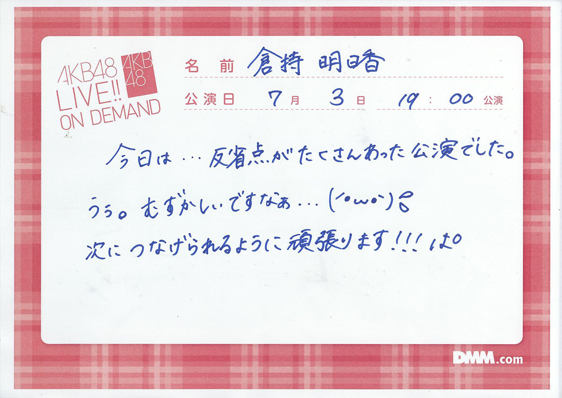 AKB48
LIVE!!
ON DEMAND
AKB
48
名前 倉持 明日香
公演日 7月 3日 19:00 公演
今日は…反省点がたくさんあった公演でした。
うぅ。むずかしいですなぁ…(´・ω・`)
次につなげられるように頑張ります!!! ぱ
DMM.com